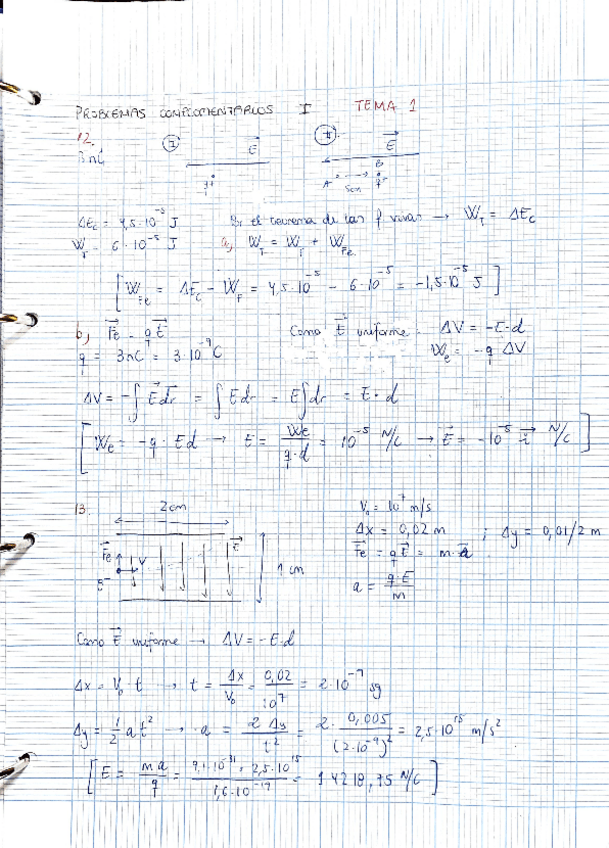 PROBLEMAS COMPLEMENTARIOS I TEMA 1
12.
3 nC
I E
II E
q+
A B
5cm q+
ΔEc = 4,5·10^-5 J
el teorema de las f vivas → W_T = ΔEc
W_F = 6·10^-5 J
a) W_T = W_F + W_Fe
[ W_Fe = ΔEc - W_F = 4,5·10^-5 - 6·10^-5 = -1,5·10^-5 J ]
b) Fe = qE
Como E uniforme ΔV = -E·d
q = 3nC = 3·10^-9 C
We = -q ΔV
ΔV = -∫E dr = ∫E dr = E∫dr = E·d
[ We = -q·Ed → E = We / q·d = 10^-5 N/C → E = -10^-5 i N/C ]
13.
2cm
Fe V E
e-
1 cm
V₀ = 10^7 m/s
Δx = 0,02 m ; Δy = 0,01/2 m
Fe = qE = m·a
a = q·E / m
Como E uniforme → ΔV = -E·d
Δx = V₀·t → t = Δx / V₀ = 0,02 / 10^7 = 2·10^-9 sg
Δy = 1/2 a t² → a = 2Δy / t² = 2· 0,005 / (2·10^-9)² = 2,5·10^15 m/s²
[ E = ma / q = 9,1·10^-31 · 2,5·10^15 / 1,6·10^-19 = 14218,75 N/C ]